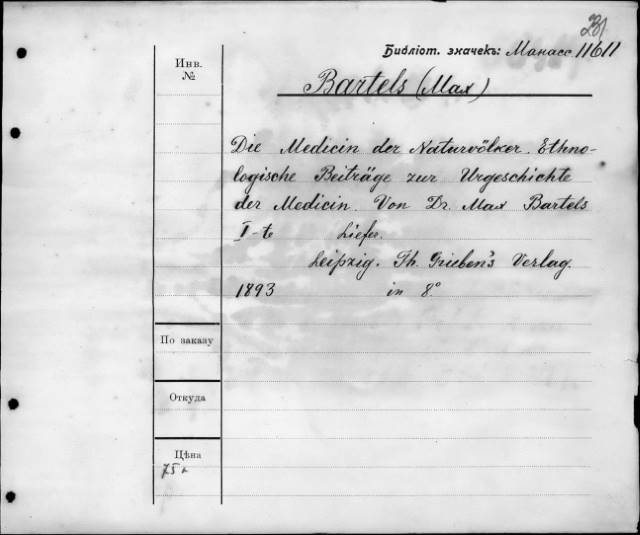 231
Библіот. значекъ: Манасс 11611
Инв.
№
Bartels (Max)
Die Medicin der Naturvölker. Ethno-
logische Beiträge zur Urgeschichte
der Medicin. Von Dr. Max Bartels
I-te Liefer.
Leipzig. Th. Grieben's Verlag.
1893 in 8°
По заказу
Откуда
Цѣна
75 к